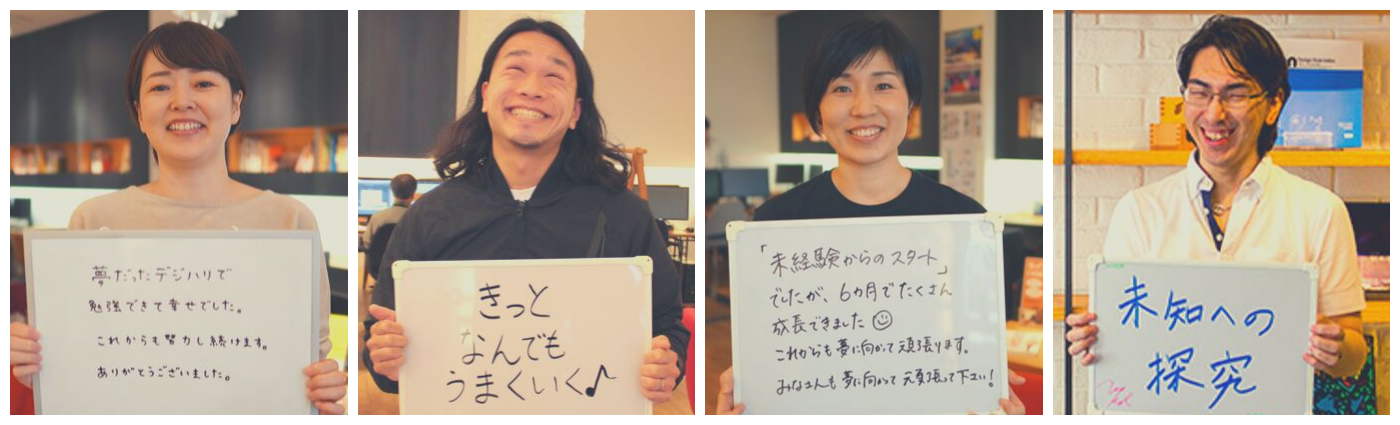 夢だったデジハリで
勉強できて幸せでした。
これからも努力し続けます。
ありがとうございました。
きっと
なんでも
うまくいく♪
「未経験からのスタート」
でしたが、6カ月でたくさん
成長できました☺
これからも夢に向かって頑張ります。
みなさんも夢に向かって頑張って下さい!
未知への
探究